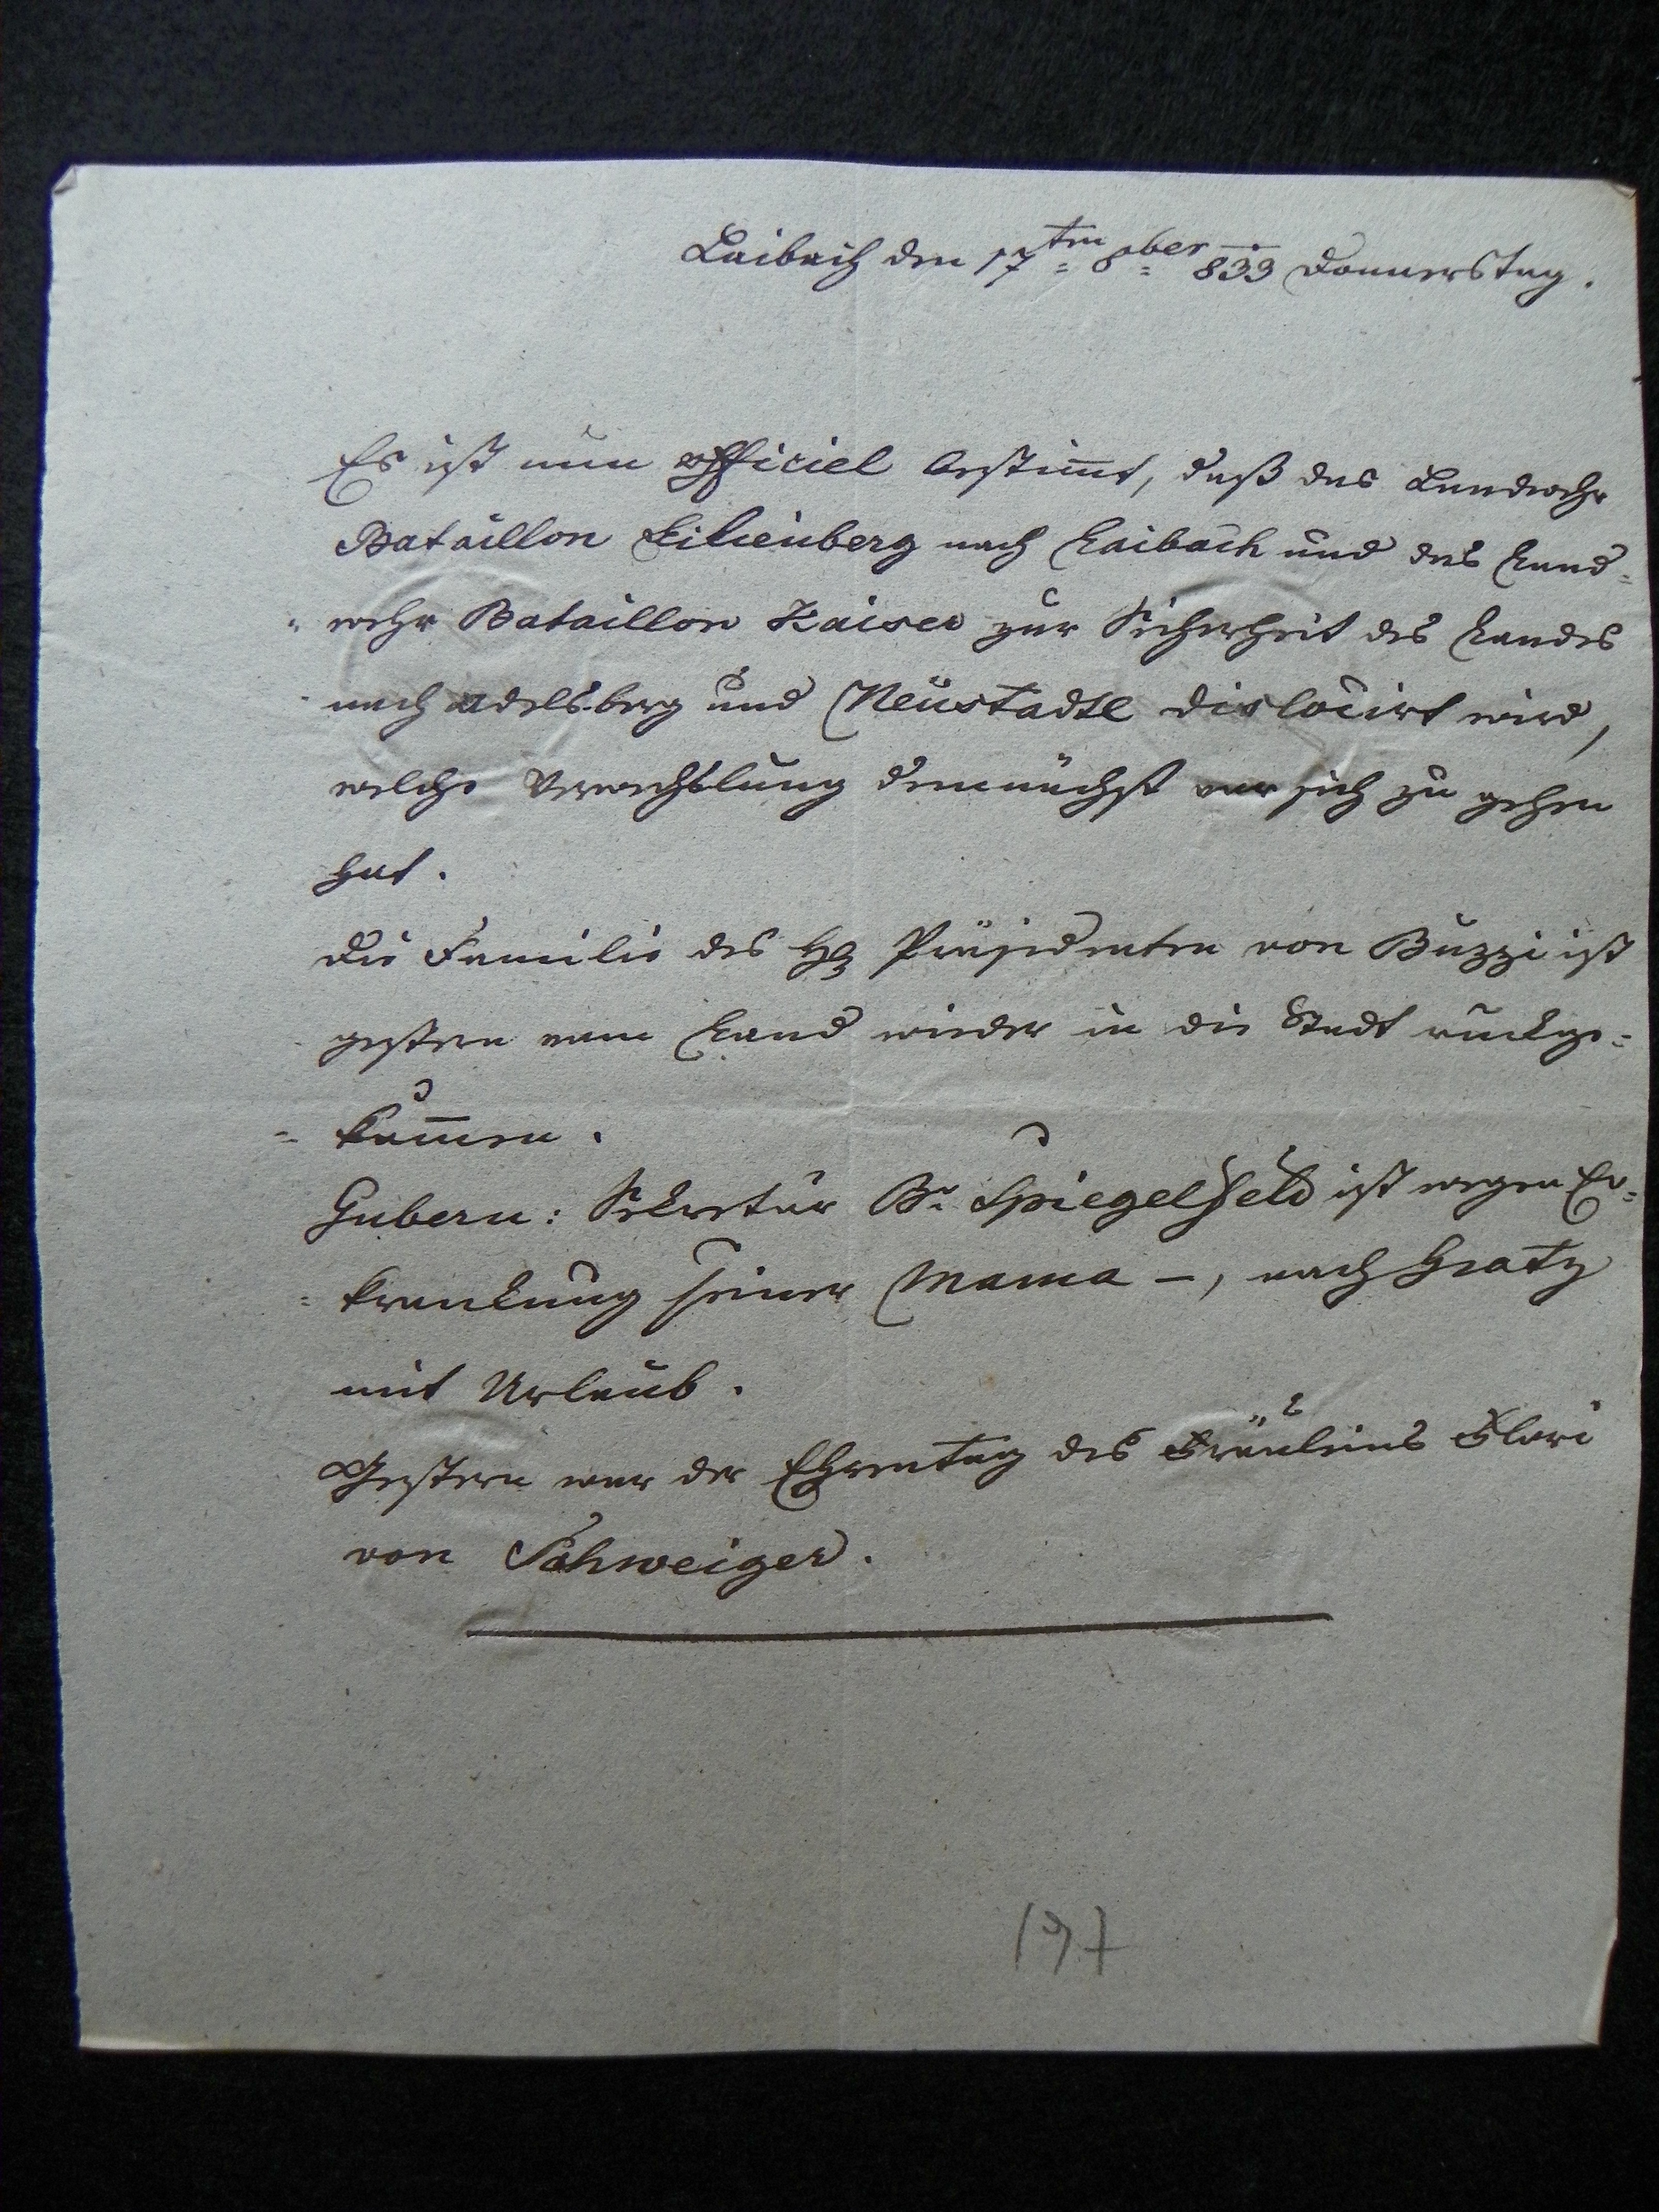 Laibach den 17ten 8ber 839 Donnerstag.
Es ist nun officiel bestim̅t, daß das Landwehr
Bataillon Lilienberg nach Laibach und das Land=
=wehr Bataillon Kaiser zur Sicherheit des Landes
nach Adelsberg und Neustadtl dislocirt wird,
welche Verwechslung demnächst vor sich zu gehen
hat.
Die Familie des H Präsidenten von Buzzi ist
gestern vom Land wieder in die Stadt rückge=
=kom̅en.
Gubern: Sekretär Br. Spiegelfeld ist wegen Er=
=krankung seiner Mama —, nach Gratz
mit Urlaub.
Gestern war der Ehrentag des Fräuleins Flori
von Schweiger.
197